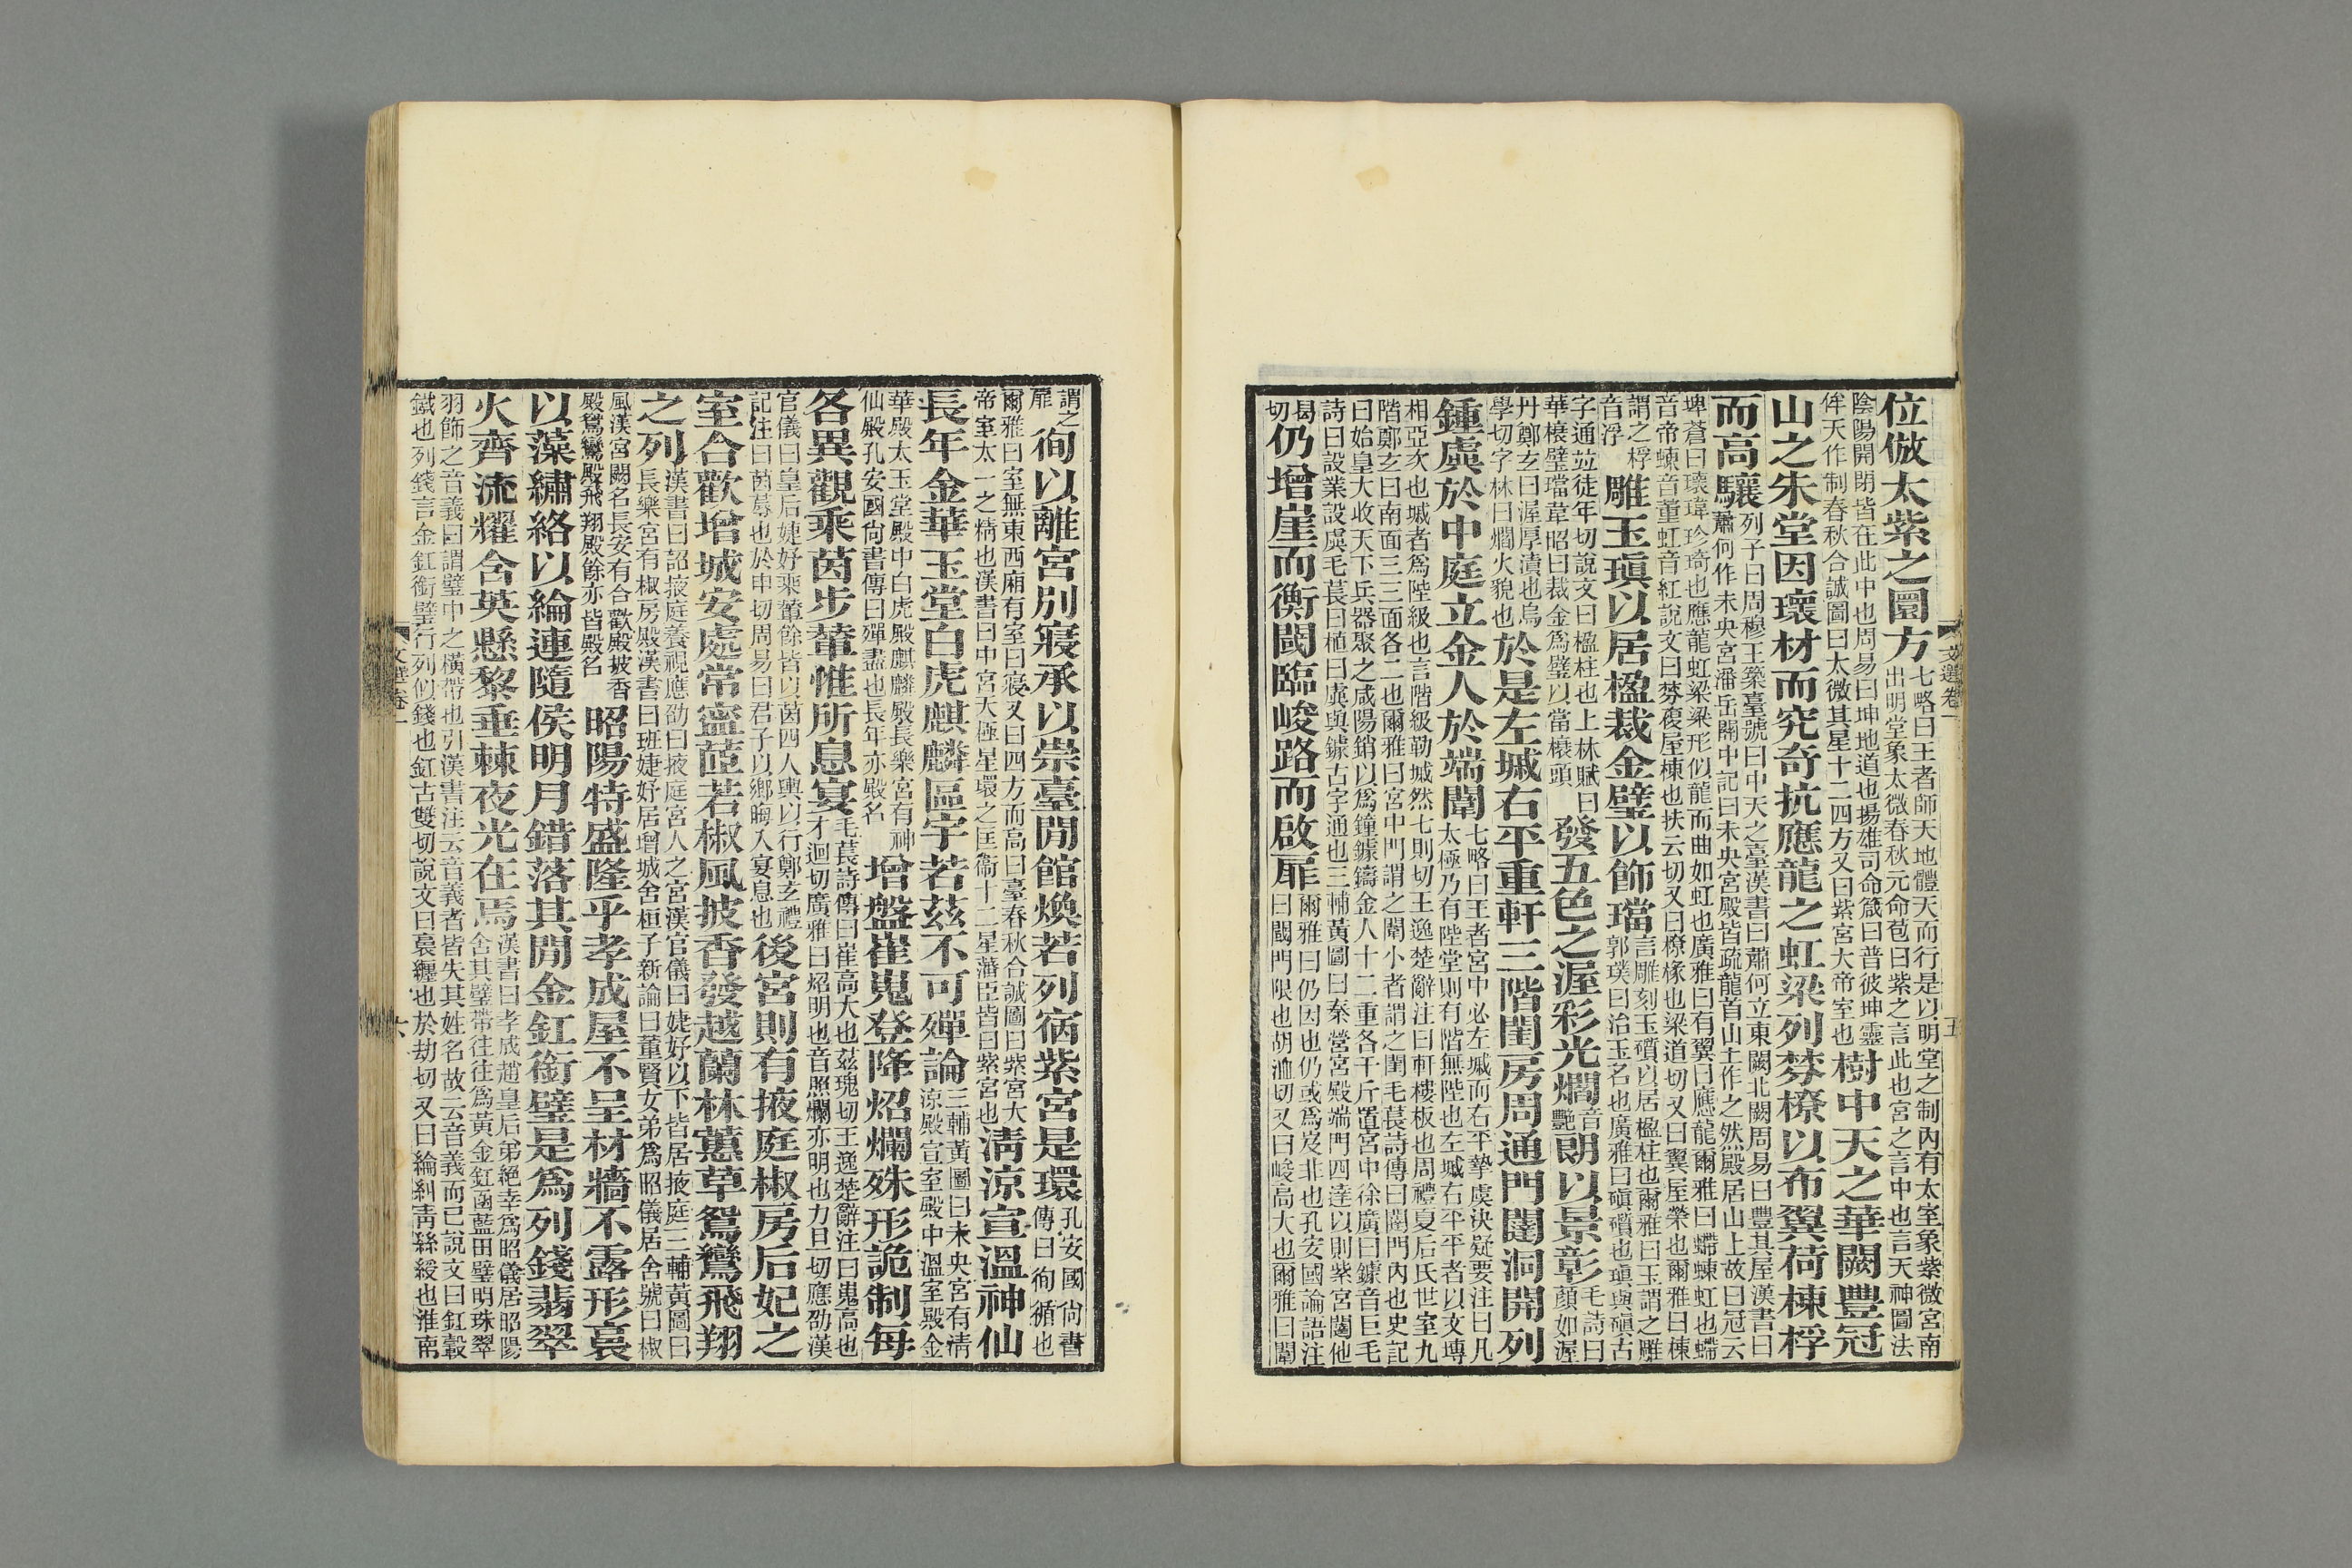 位倣太紫之圜方七略曰王者師天地體天而行是以明堂之制內有太室象紫微宮南
出明堂象太微春秋元命苞曰紫之言此也宮之言中也言天神圖法
陰陽開閉皆在此中也周易曰坤地道也揚雄司命箴曰普彼坤靈
侔天作制春秋合誠圖曰太微其星十二四方又曰紫宮大帝室也樹中天之華闕豐冠
山之朱堂因瓌材而究奇抗應龍之虹梁列棼橑以布翼荷棟桴
而高驤列子曰周穆王築臺號曰中天之臺漢書曰蕭何立東闕北闕周易曰豐其屋漢書曰
蕭何作未央宮潘岳關中記曰未央宮殿皆疏龍首山土作之然殿居山上故曰冠云
埤蒼曰瓌瑋珍琦也應龍虹梁梁形似龍而曲如虹也廣雅曰有翼曰應龍爾雅曰螮蝀虹也螮
音帝蝀音董虹音紅說文曰棼複屋棟也扶云切又曰橑椽也梁道切又曰翼屋榮也爾雅曰棟
謂之桴
音浮雕玉瑱以居楹裁金璧以飾璫言雕刻玉礩以居楹柱也爾雅曰玉謂之雕
郭璞曰治玉名也廣雅曰磌礩也瑱與磌古
字通並徒年切說文曰楹柱也上林賦曰
華榱璧璫韋昭曰裁金爲璧以當榱頭發五色之渥彩光爓音豔朗以景彰毛詩曰
顏如渥
丹鄭玄曰渥厚漬也烏
學切字林曰爓火貌也於是左墄右平重軒三階閨房周通門闥洞開列
鍾虡於中庭立金人於端闈七略曰王者宮中必左墄而右平摯虞決疑要注曰凡
太極乃有陛堂則有階無陛也左墄右平平者以文塼
相亞次也墄者爲陛級也言階級勒墄然七則切王逸楚辭注曰軒樓板也周禮夏后氏世室九
階鄭玄曰南面三三面各二也爾雅曰宮中門謂之闈小者謂之閨毛萇詩傳曰闥門內也史記
曰始皇大收天下兵器聚之咸陽銷以爲鐘鐻鑄金人十二重各千斤置宮中徐廣曰鐻音巨毛
詩曰設業設虡毛萇曰植曰虡與鐻古字通也三輔黃圖曰秦營宮殿端門四達以則紫宮闥他
曷
切仍增崖而衡閾臨峻路而啟扉爾雅曰仍因也仍或爲岌非也孔安國論語注
曰閾門限也胡洫切又曰峻高大也爾雅曰闔
文選卷一
五
謂之
扉徇以離宮別寢承以崇臺閒館煥若列宿紫宮是環孔安國尚書
傳曰徇循也
爾雅曰室無東西廂有室曰寢又曰四方而高曰臺春秋合誠圖曰紫宮大
帝室太一之精也漢書曰中宮天極星環之匡衞十二星藩臣皆曰紫宮也清涼宣溫神仙
長年金華玉堂白虎麒麟區宇若茲不可殫論三輔黃圖曰未央宮有清
涼殿宣室殿中溫室殿金
華殿太玉堂殿中白虎殿麒麟殿長樂宮有神
仙殿孔安國尚書傳曰殫盡也長年亦殿名增盤崔嵬登降炤爛殊形詭制每
各異觀乘茵步輦惟所息宴毛萇詩傳曰崔高大也茲瑰切王逸楚辭注曰嵬高也
才迴切廣雅曰炤明也音照爛亦明也力旦切應劭漢
官儀曰皇后婕妤乘輦餘皆以茵四人輿以行鄭玄禮
記注曰茵蓐也於申切周易曰君子以嚮晦入宴息也後宮則有掖庭椒房后妃之
室合歡增城安處常寧茝若椒風披香發越蘭林蕙草鴛鸞飛翔
之列漢書曰詔掖庭養視應劭曰掖庭宮人之宮漢官儀曰婕妤以下皆居掖庭三輔黃圖曰
長樂宮有椒房殿漢書曰班婕妤居增城舍桓子新論曰董賢女弟爲昭儀居舍號曰椒
風漢宮闕名長安有合歡殿披香
殿鴛鸞殿飛翔殿餘亦皆殿名昭陽特盛隆乎孝成屋不呈材牆不露形裛
以藻繡絡以綸連隨侯明月錯落其閒金釭銜璧是爲列錢翡翠
火齊流耀含英懸黎垂棘夜光在焉漢書曰孝成趙皇后弟絕幸爲昭儀居昭陽
舍其璧帶往往爲黃金釭函藍田璧明珠翠
羽飾之音義曰謂璧中之橫帶也引漢書注云音義者皆失其姓名故云音義而已說文曰釭轂
鐵也列錢言金釭銜璧行列似錢也釭古雙切說文曰裛纏也於劫切又曰綸糾青絲綬也淮南
文選卷一
六